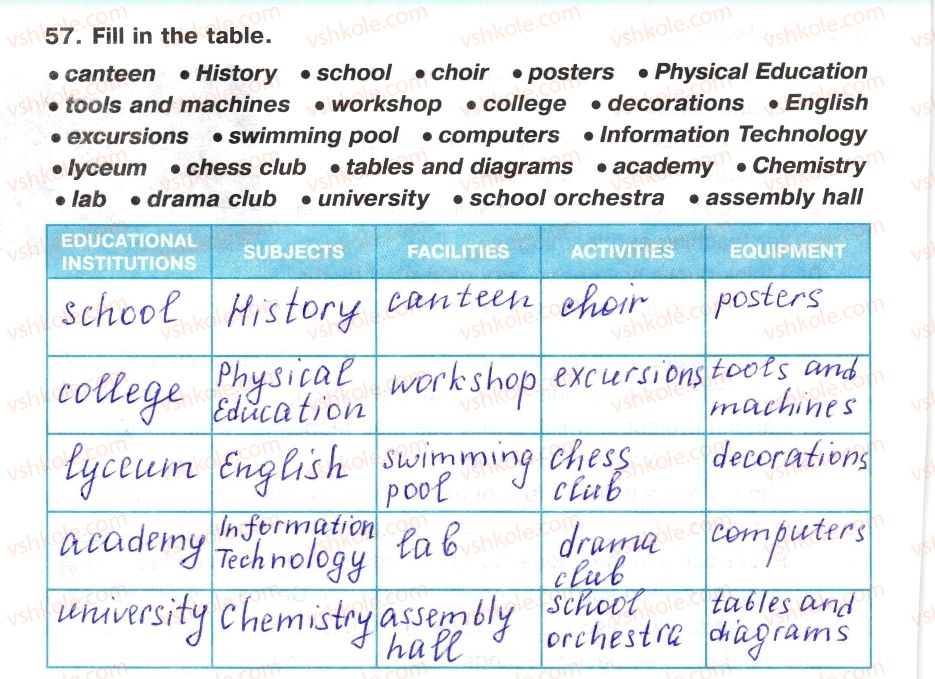 57. Fill in the table.
• canteen • History • school • choir • posters • Physical Education
• tools and machines • workshop • college • decorations • English
• excursions • swimming pool • computers • Information Technology
• lyceum • chess club • tables and diagrams • academy • Chemistry
• lab • drama club • university • school orchestra • assembly hall
EDUCATIONAL INSTITUTIONS SUBJECTS FACILITIES ACTIVITIES EQUIPMENT
school History canteen choir posters
college Physical Education workshop excursions tools and machines
lyceum English swimming pool chess club decorations
academy Information Technology lab drama club computers
university Chemistry assembly hall school orchestra tables and diagrams
vshkole.com